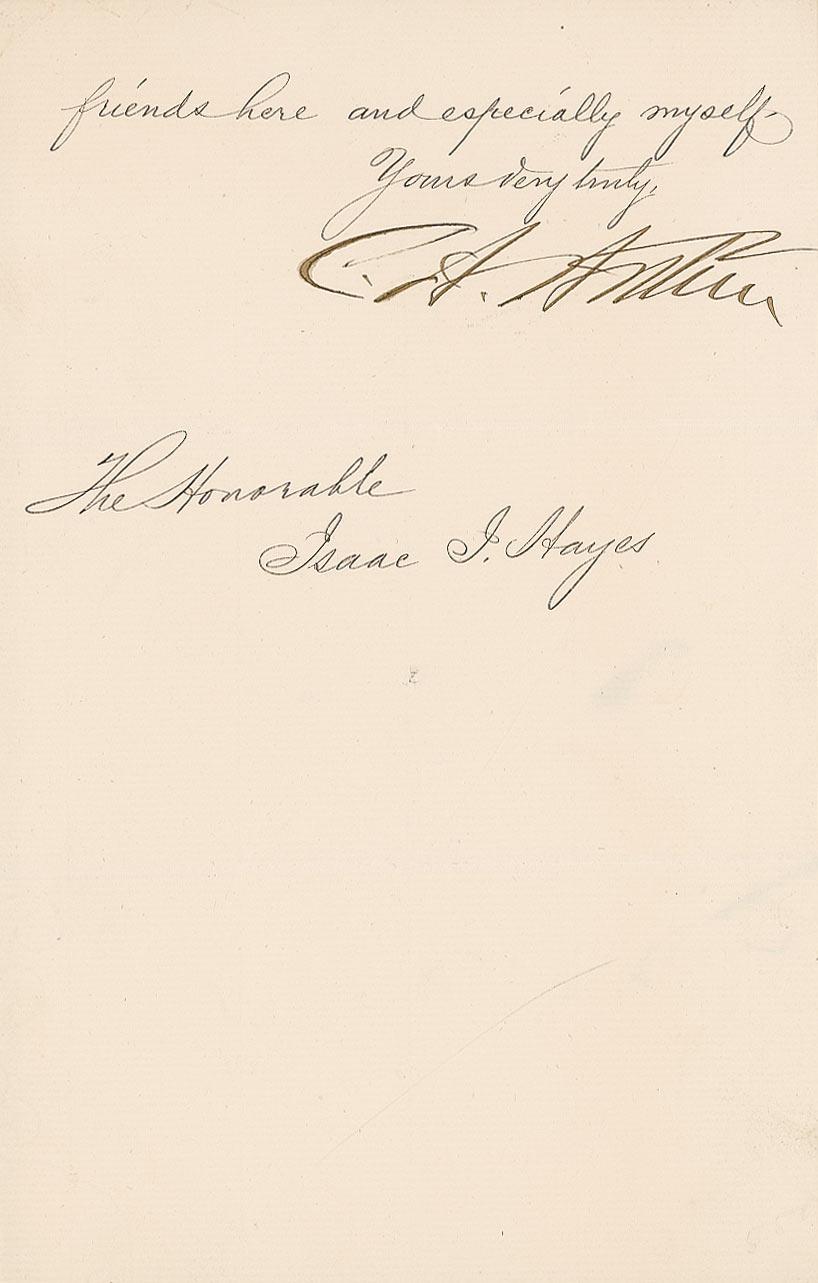 friends here and especially myself.
Yours very truly,
C. A. Arthur
The Honorable
Isaac I. Hayes